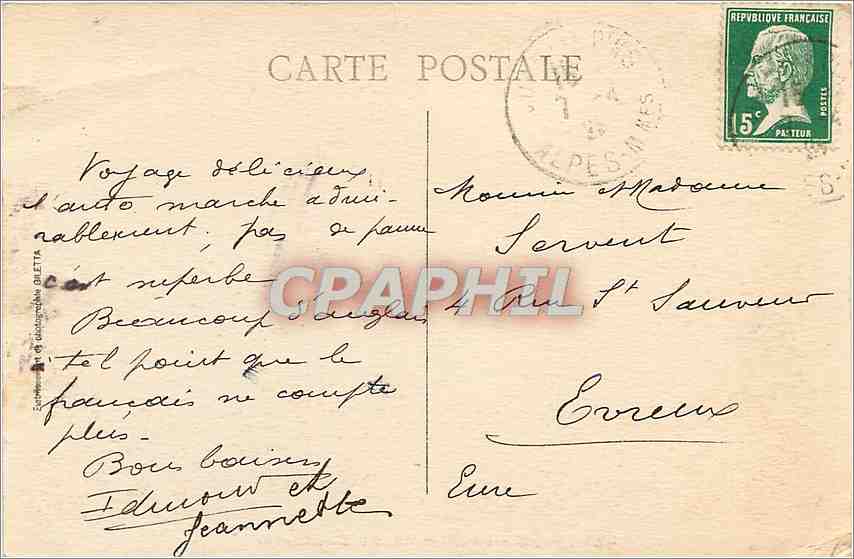 CARTE POSTALE
REPVBLIQVE FRANÇAISE
15c
PASTEUR
POSTES
ALPES-M MES
Voyage délicieux
l'auto marche admi-
rablement, pas de panne
c'est superbe
Beaucoup d'anglais
à tel point que le
français ne compte
plus -
Bons baisers
Edmond et
Jeannette
Monsieur et Madame
Servent
4 Rue St Sauveur
Evreux
Eure
Etablissement de photographie GILETTA
CPAPHIL